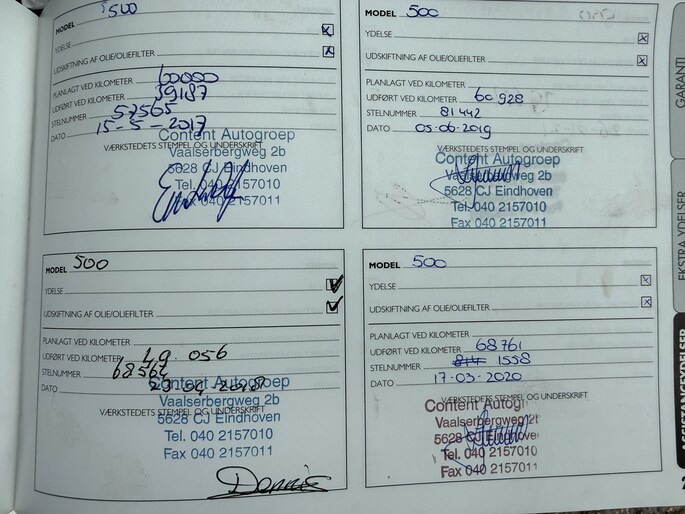 MODEL 500
YDELSE
UDSKIFTNING AF OLIE/OLIEFILTER
PLANLAGT VED KILOMETER 60000
UDFØRT VED KILOMETER 39187
STELNUMMER 57565
DATO 15-5-2017
VÆRKSTEDETS STEMPEL OG UNDERSKRIFT
Content Autogroep
Vaalserbergweg 2b
5628 CJ Eindhoven
Tel. 040 2157010
Fax 040 2157011
MODEL 500
YDELSE
UDSKIFTNING AF OLIE/OLIEFILTER
PLANLAGT VED KILOMETER
UDFØRT VED KILOMETER 60 928
STELNUMMER 81442
DATO 05-06-2019
VÆRKSTEDETS STEMPEL OG UNDERSKRIFT
Content Autogroep
Vaalserbergweg 2b
5628 CJ Eindhoven
Tel. 040 2157010
Fax 040 2157011
MODEL 500
YDELSE
UDSKIFTNING AF OLIE/OLIEFILTER
PLANLAGT VED KILOMETER
UDFØRT VED KILOMETER 49.056
STELNUMMER 68564
DATO
VÆRKSTEDETS STEMPEL OG UNDERSKRIFT
Content Autogroep
Vaalserbergweg 2b
5628 CJ Eindhoven
Tel. 040 2157010
Fax 040 2157011
Dennis
MODEL 500
YDELSE
UDSKIFTNING AF OLIE/OLIEFILTER
PLANLAGT VED KILOMETER
UDFØRT VED KILOMETER 68761
STELNUMMER 814 1558
DATO 17-03-2020
VÆRKSTEDETS STEMPEL OG UNDERSKRIFT
Content Autogr
Vaalserbergweg 2b
5628 CJ Eindhoven
Tel. 040 2157010
Fax 040 2157011
GARANTI
EKSTRA YDELSER
ASSISTANCEYDELSER